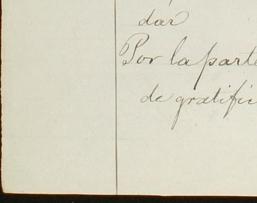 dar
Por la parte
de gratific